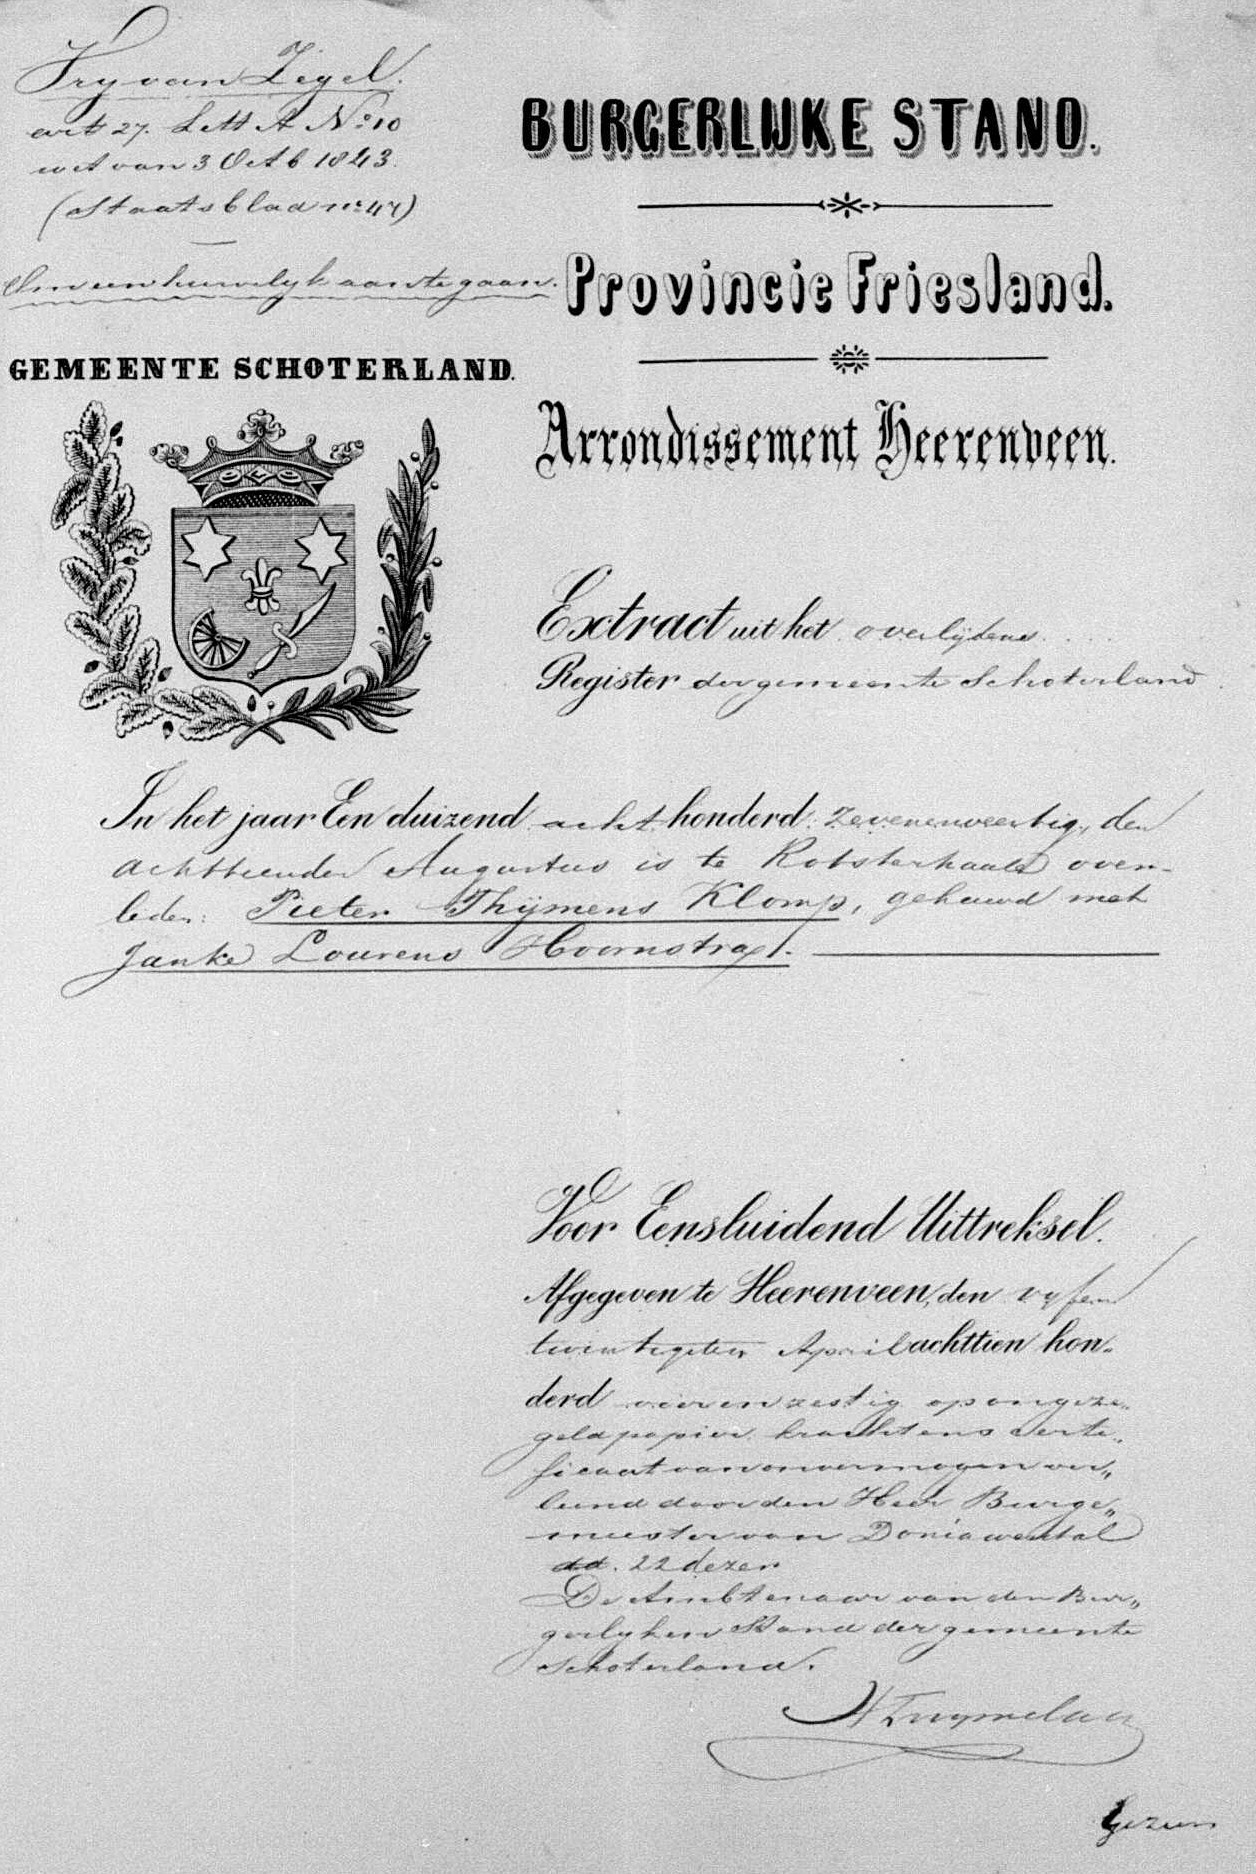 Vry van Zegel.
art 27. Lett A No 10
wet van 3 Octb 1843.
(Staatsblad no 47)
Om een huwelyk aantegaan.
GEMEENTE SCHOTERLAND.
BURGERLIJKE STAND.
Provincie Friesland.
Arrondissement Heerenveen.
Extract uit het overlijdens
Register der gemeente Schoterland
In het jaar Een duizend acht honderd zevenenveertig, den
achttienden Augustus is te Rotsterhaule over-
leden: Pieter Thijmens Klomp, gehuwd met
Janke Lourens Hoornstra.
Voor Eensluidend Uittreksel.
Afgegeven te Heerenveen, den vyfen
twintigsten April achttien hon-
derd vierenzestig op ongeze„
geld papier krachtens certi„
ficaat van onvermogen ver„
leend door den Heer Burge„
meester van Doniawerstal
dd. 22 dezer
De Ambtenaar van den Bur„
gerlyken Stand der gemeente
Schoterland.
Gezien